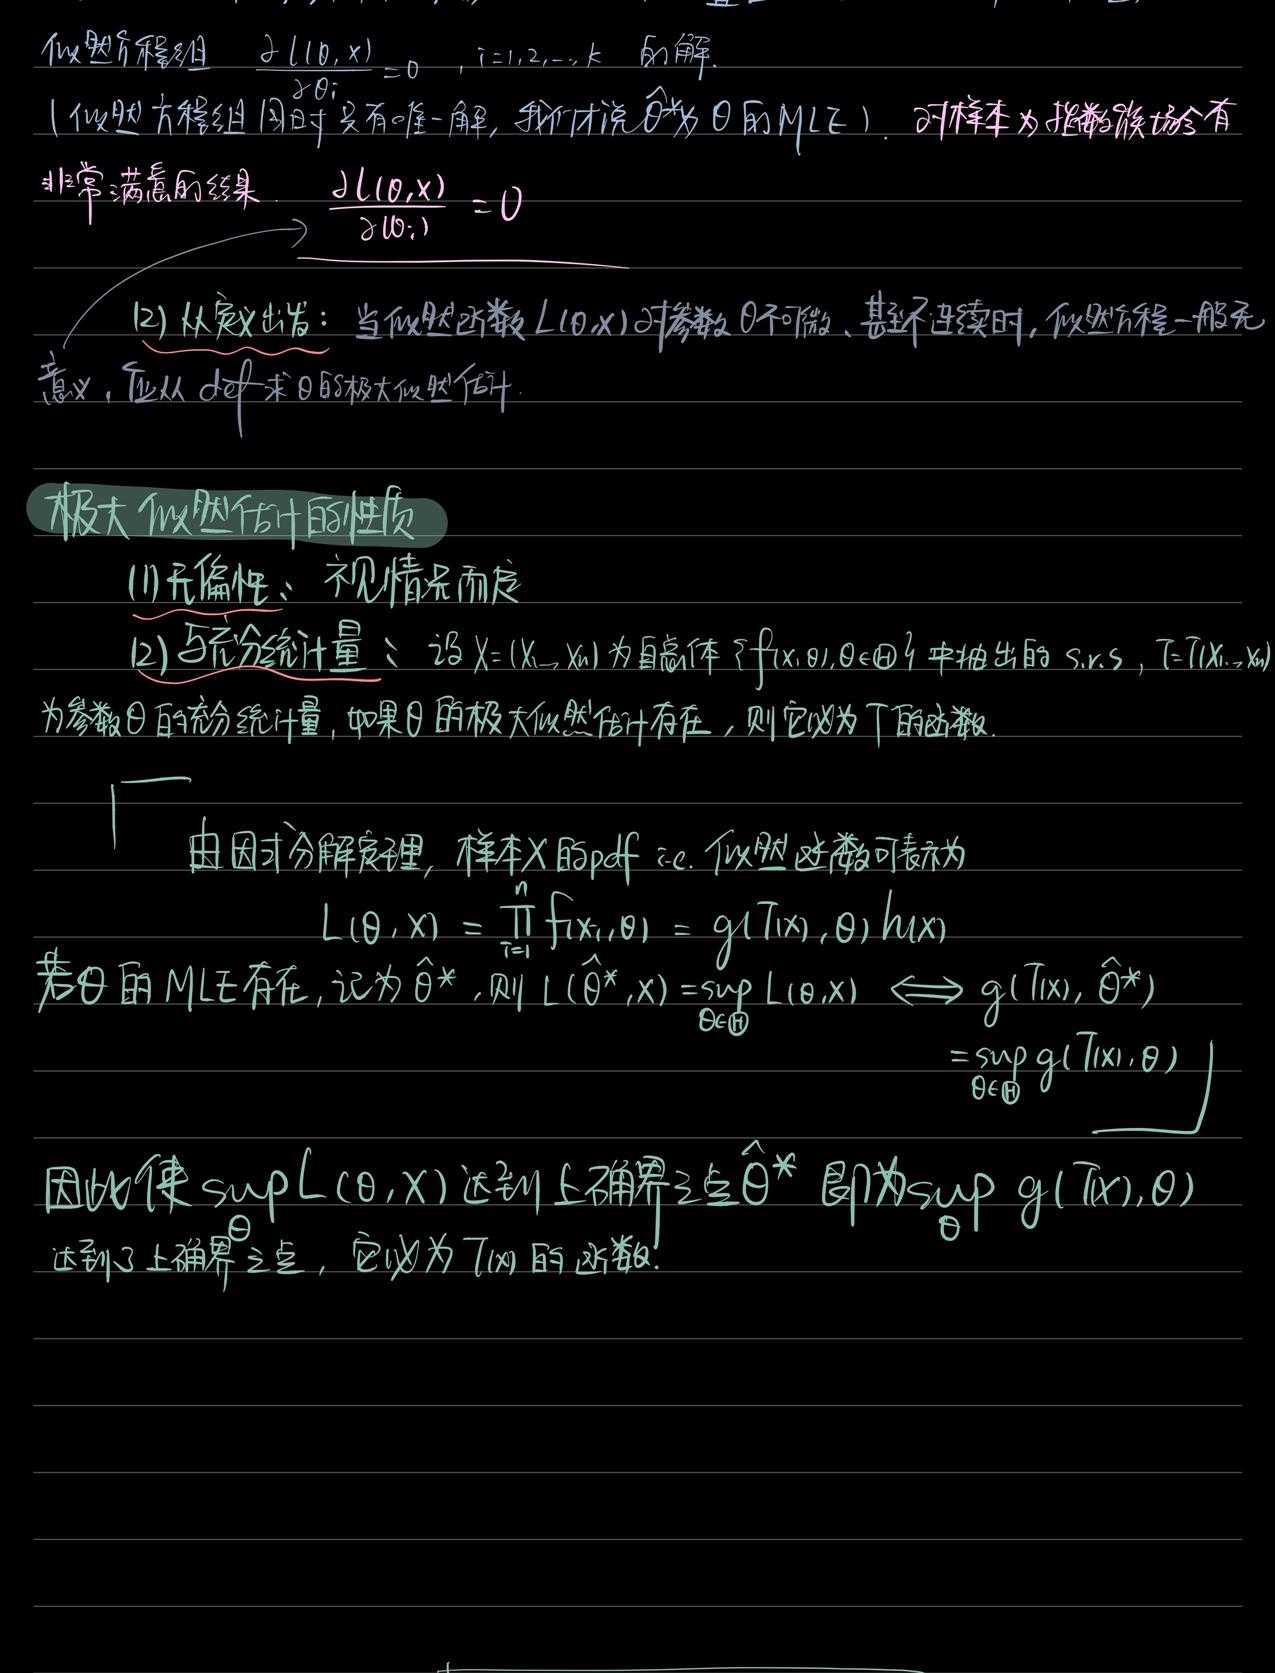 似然方程组 ∂l(θ,x)/∂θi = 0 , i=1,2,…,k 的解.
(似然方程组同时只有唯一解, 我们才说 θ̂* 为 θ 的 MLE). 对样本为指数族场合有
非常满意的结果. ∂l(θ,x)/∂(θi) = 0
(2) 从定义出发: 当似然函数 L(θ,x) 对参数 θ 不可微、甚至不连续时, 似然方程一般无
意义, 应从 def 求 θ 的极大似然估计.
极大似然估计的性质
(1) 无偏性: 视情况而定
(2) 与充分统计量: 设 X=(X1,…,Xn) 为自总体 {f(x,θ),θ∈Θ} 中抽出的 s.r.s, T=T(X1,…,Xn)
为参数 θ 的充分统计量, 如果 θ 的极大似然估计存在, 则它必为 T 的函数.
由因式分解定理, 样本X的pdf i.e. 似然函数可表示为
L(θ,x) = ∏_{i=1}^{n} f(xi,θ) = g(T(x),θ) h(x)
若θ的MLE存在, 记为 θ̂*, 则 L(θ̂*,x) = sup_{θ∈Θ} L(θ,x) ⟺ g(T(x), θ̂*)
= sup_{θ∈Θ} g(T(x),θ)
因此使 sup_θ L(θ,x) 达到上确界之点 θ̂* 即为 sup_θ g(T(x),θ)
达到了上确界之点, 它必为 T(x) 的函数.